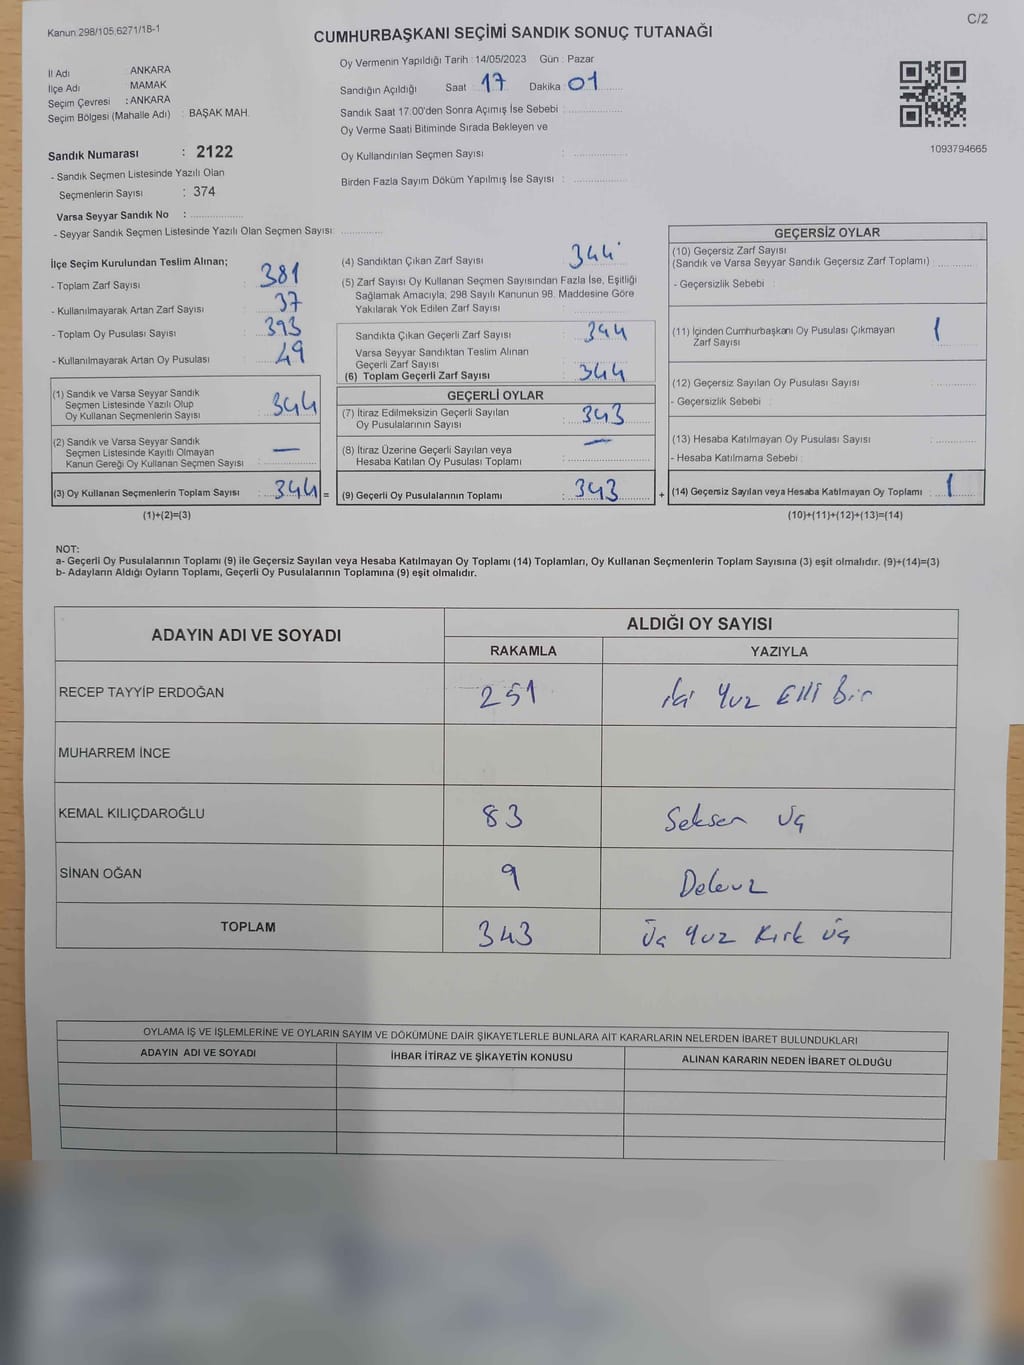 Kanun 298/105,6271/18-1
C/2
CUMHURBAŞKANI SEÇİMİ SANDIK SONUÇ TUTANAĞI
İl Adı ANKARA
İlçe Adı MAMAK
Seçim Çevresi : ANKARA
Seçim Bölgesi (Mahalle Adı) : BAŞAK MAH.
Sandık Numarası : 2122
- Sandık Seçmen Listesinde Yazılı Olan
Seçmenlerin Sayısı : 374
Varsa Seyyar Sandık No :
- Seyyar Sandık Seçmen Listesinde Yazılı Olan Seçmen Sayısı
Oy Vermenin Yapıldığı Tarih : 14/05/2023 Gün : Pazar
Sandığın Açıldığı Saat 17 Dakika 01
Sandık Saat 17:00'den Sonra Açımış İse Sebebi :
Oy Verme Saati Bitiminde Sırada Bekleyen ve
Oy Kullandırılan Seçmen Sayısı :
Birden Fazla Sayım Döküm Yapılmış İse Sayısı :
1093794665
İlçe Seçim Kurulundan Teslim Alınan;
- Toplam Zarf Sayısı : 381
- Kullanılmayarak Artan Zarf Sayısı : 37
- Toplam Oy Pusulası Sayısı : 393
- Kullanılmayarak Artan Oy Pusulası : 49
(1) Sandık ve Varsa Seyyar Sandık
Seçmen Listesinde Yazılı Olup
Oy Kullanan Seçmenlerin Sayısı : 344
(2) Sandık ve Varsa Seyyar Sandık
Seçmen Listesinde Kayıtlı Olmayan
Kanun Gereği Oy Kullanan Seçmen Sayısı : —
(3) Oy Kullanan Seçmenlerin Toplam Sayısı : 344 =
(1)+(2)=(3)
(4) Sandıktan Çıkan Zarf Sayısı 344
(5) Zarf Sayısı Oy Kullanan Seçmen Sayısından Fazla İse, Eşitliği
Sağlamak Amacıyla, 298 Sayılı Kanunun 98. Maddesine Göre
Yakılarak Yok Edilen Zarf Sayısı :
Sandıkta Çıkan Geçerli Zarf Sayısı : 344
Varsa Seyyar Sandıktan Teslim Alınan
Geçerli Zarf Sayısı
(6) Toplam Geçerli Zarf Sayısı : 344
GEÇERLİ OYLAR
(7) İtiraz Edilmeksizin Geçerli Sayılan
Oy Pusulalarının Sayısı : 343
(8) İtiraz Üzerine Geçerli Sayılan veya
Hesaba Katılan Oy Pusulası Toplamı : —
(9) Geçerli Oy Pusulalarının Toplamı : 343 +
GEÇERSİZ OYLAR
(10) Geçersiz Zarf Sayısı
(Sandık ve Varsa Seyyar Sandık Geçersiz Zarf Toplamı) :
- Geçersizlik Sebebi :
(11) İçinden Cumhurbaşkanı Oy Pusulası Çıkmayan
Zarf Sayısı 1
(12) Geçersiz Sayılan Oy Pusulası Sayısı :
- Geçersizlik Sebebi :
(13) Hesaba Katılmayan Oy Pusulası Sayısı :
- Hesaba Katılmama Sebebi :
(14) Geçersiz Sayılan veya Hesaba Katılmayan Oy Toplamı : 1
(10)+(11)+(12)+(13)=(14)
NOT:
a- Geçerli Oy Pusulalarının Toplamı (9) ile Geçersiz Sayılan veya Hesaba Katılmayan Oy Toplamı (14) Toplamları, Oy Kullanan Seçmenlerin Toplam Sayısına (3) eşit olmalıdır. (9)+(14)=(3)
b- Adayların Aldığı Oyların Toplamı, Geçerli Oy Pusulalarının Toplamına (9) eşit olmalıdır.
ADAYIN ADI VE SOYADI ALDIĞI OY SAYISI
RAKAMLA YAZIYLA
RECEP TAYYİP ERDOĞAN 251 iki Yuz Elli Bir
MUHARREM İNCE
KEMAL KILIÇDAROĞLU 83 Seksen Üç
SİNAN OĞAN 9 Dokuz
TOPLAM 343 Üç Yuz Kırk üç
OYLAMA İŞ VE İŞLEMLERİNE VE OYLARIN SAYIM VE DÖKÜMÜNE DAİR ŞİKAYETLERLE BUNLARA AİT KARARLARIN NELERDEN İBARET BULUNDUKLARI
ADAYIN ADI VE SOYADI İHBAR İTİRAZ VE ŞİKAYETİN KONUSU ALINAN KARARIN NEDEN İBARET OLDUĞU